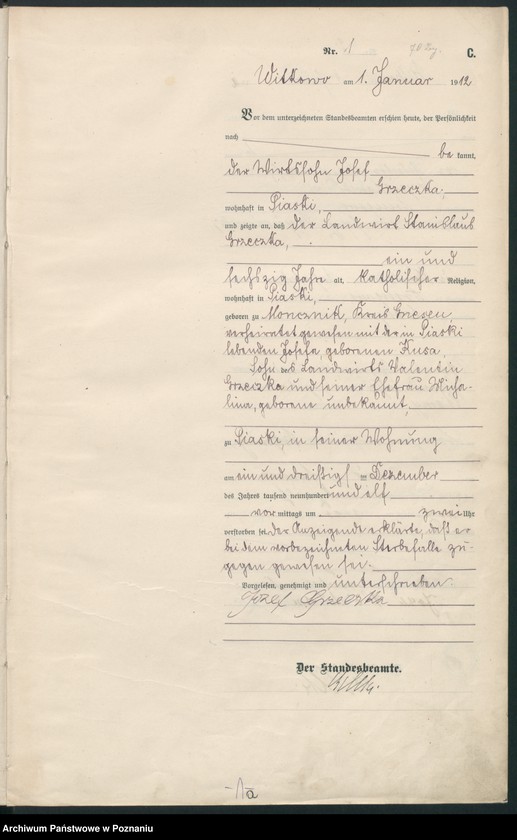 Nr. 1
C.
Witkowo am 1. Januar 1912
Vor dem unterzeichneten Standesbeamten erschien heute, der Persönlichkeit
nach
be kannt,
der Wirtssohn Josef
Grzeczka,
wohnhaft in Piaski,
und zeigte an, daß der Landwirt Stanislaus
Grzeczka,
ein und
sechszig Jahre alt, katholischer Religion,
wohnhaft in Piaski,
geboren zu Moncznik, Kreis Gnesen,
verheiratet gewesen mit der in Piaski
lebenden Josefa, geborenen Kusa,
Sohn des Landwirts Valentin
Grzeczka und seiner Ehefrau Micha-
lina, geborene unbekannt,
zu Piaski, in seiner Wohnung
am ein und dreißigsten Dezember
des Jahres tausend neunhundert und elf
vor mittags um zwei Uhr
verstorben sei, der Anzeigende erklärte, daß er
bei dem vorbezeichneten Sterbefalle zu-
gegen gewesen sei.
Vorgelesen, genehmigt und unterschrieben.
Józef Grzeczka
Der Standesbeamte.
Archiwum Państwowe w Poznaniu